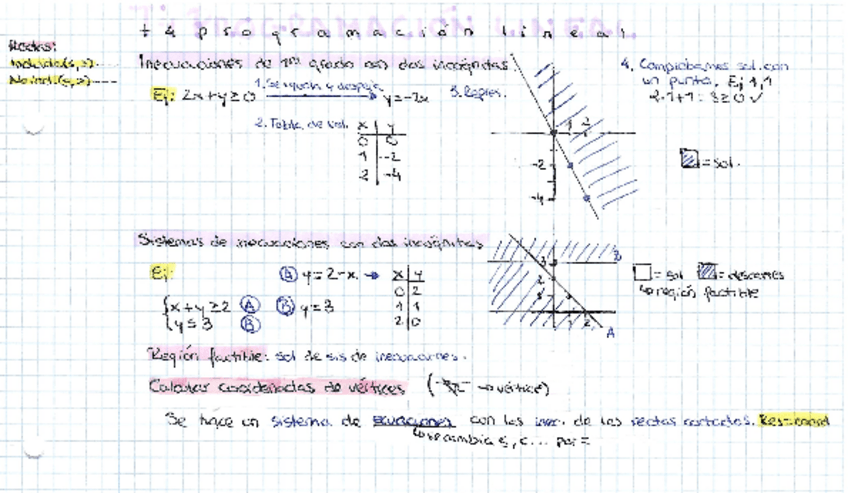 t4 programación lineal
Rectas:
Incluida (≤, ≥) —
No incl. (<, >) ---
Inecuaciones de 1er grado con dos incógnitas
Ej: 2x+y≥0 1. Se iguala y despeja y=-2x 3. Repres.
2. Tabla de val. x y
0 0
1 -2
2 -4
1 2
-2
-4
4. Comprobamos sol. con
un punto. Ej 1,1
2·1+1 = 3≥0 ✓
= sol.
Sistemas de inecuaciones con dos incógnitas
Ej: A y=2-x → x y
0 2
1 1
2 0
x+y≥2 A B y=3
y≤3 B
3
2
1
1 2
B
A
= sol = descartes
región factible
Región factible: sol de sis de inecuaciones.
Calcular coordenadas de vértices ( → vértice)
Se hace un sistema de ecuaciones con las inec. de las rectas cortadas. Res=coord
se cambia ≤, <... por =